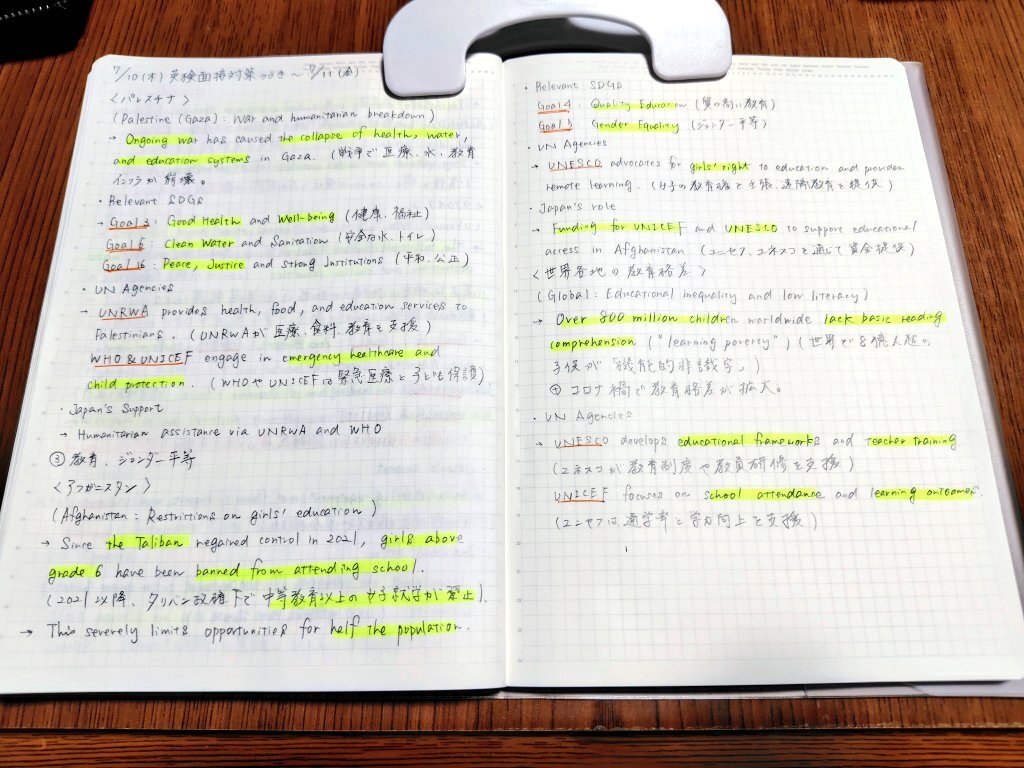 7/10(木) 英検面接対策つづき～7/11(金)
<パレスチナ>
(Palestine (Gaza): War and humanitarian breakdown)
→ Ongoing war has caused the collapse of health, water,
and education systems in Gaza. (戦争で医療、水、教育
インフラが崩壊。
・Relevant SDGs
→ Goal 3: Good Health and Well-being (健康、福祉)
Goal 6: Clean Water and Sanitation (安全な水、トイレ)
Goal 16: Peace, Justice and Strong Institutions (平和、公正)
・UN Agencies
→ UNRWA provides health, food, and education services to
Palestinians. (UNRWAが医療、食料、教育を支援)
WHO & UNICEF engage in emergency healthcare and
child protection. (WHOやUNICEFは緊急医療と子ども保護).
・Japan's Support
→ Humanitarian assistance via UNRWA and WHO
③ 教育、ジェンダー平等
<アフガニスタン>
(Afghanistan: Restrictions on girls' education)
→ Since the Taliban regained control in 2021, girls above
grade 6 have been banned from attending school.
(2021以降、タリバン政権下で中等教育以上の女子就学が禁止).
→ This severely limits opportunities for half the population.
・Relevant SDGs
Goal 4: Quality Education (質の高い教育)
Goal 5: Gender Equality (ジェンダー平等)
・UN Agencies
→ UNESCO advocates for girls' right to education and provides
remote learning. (女子の教育権を主張、遠隔教育を提供)
・Japan's role
→ Funding for UNICEF and UNESCO to support educational
access in Afghanistan. (ユニセフ、ユネスコを通して資金提供)
<世界各地の教育格差>
(Global: Educational inequality and low literacy)
→ Over 800 million children worldwide lack basic reading
comprehension ("learning poverty") (世界で8億人超の
子供が「機能的非識字」)
⊕ コロナ禍で教育格差が拡大。
・UN Agencies
→ UNESCO develops educational frameworks and teacher training
(ユネスコが教育制度や教員研修を支援)
UNICEF focuses on school attendance and learning outcomes.
(ユニセフは通学率と学力向上を支援)